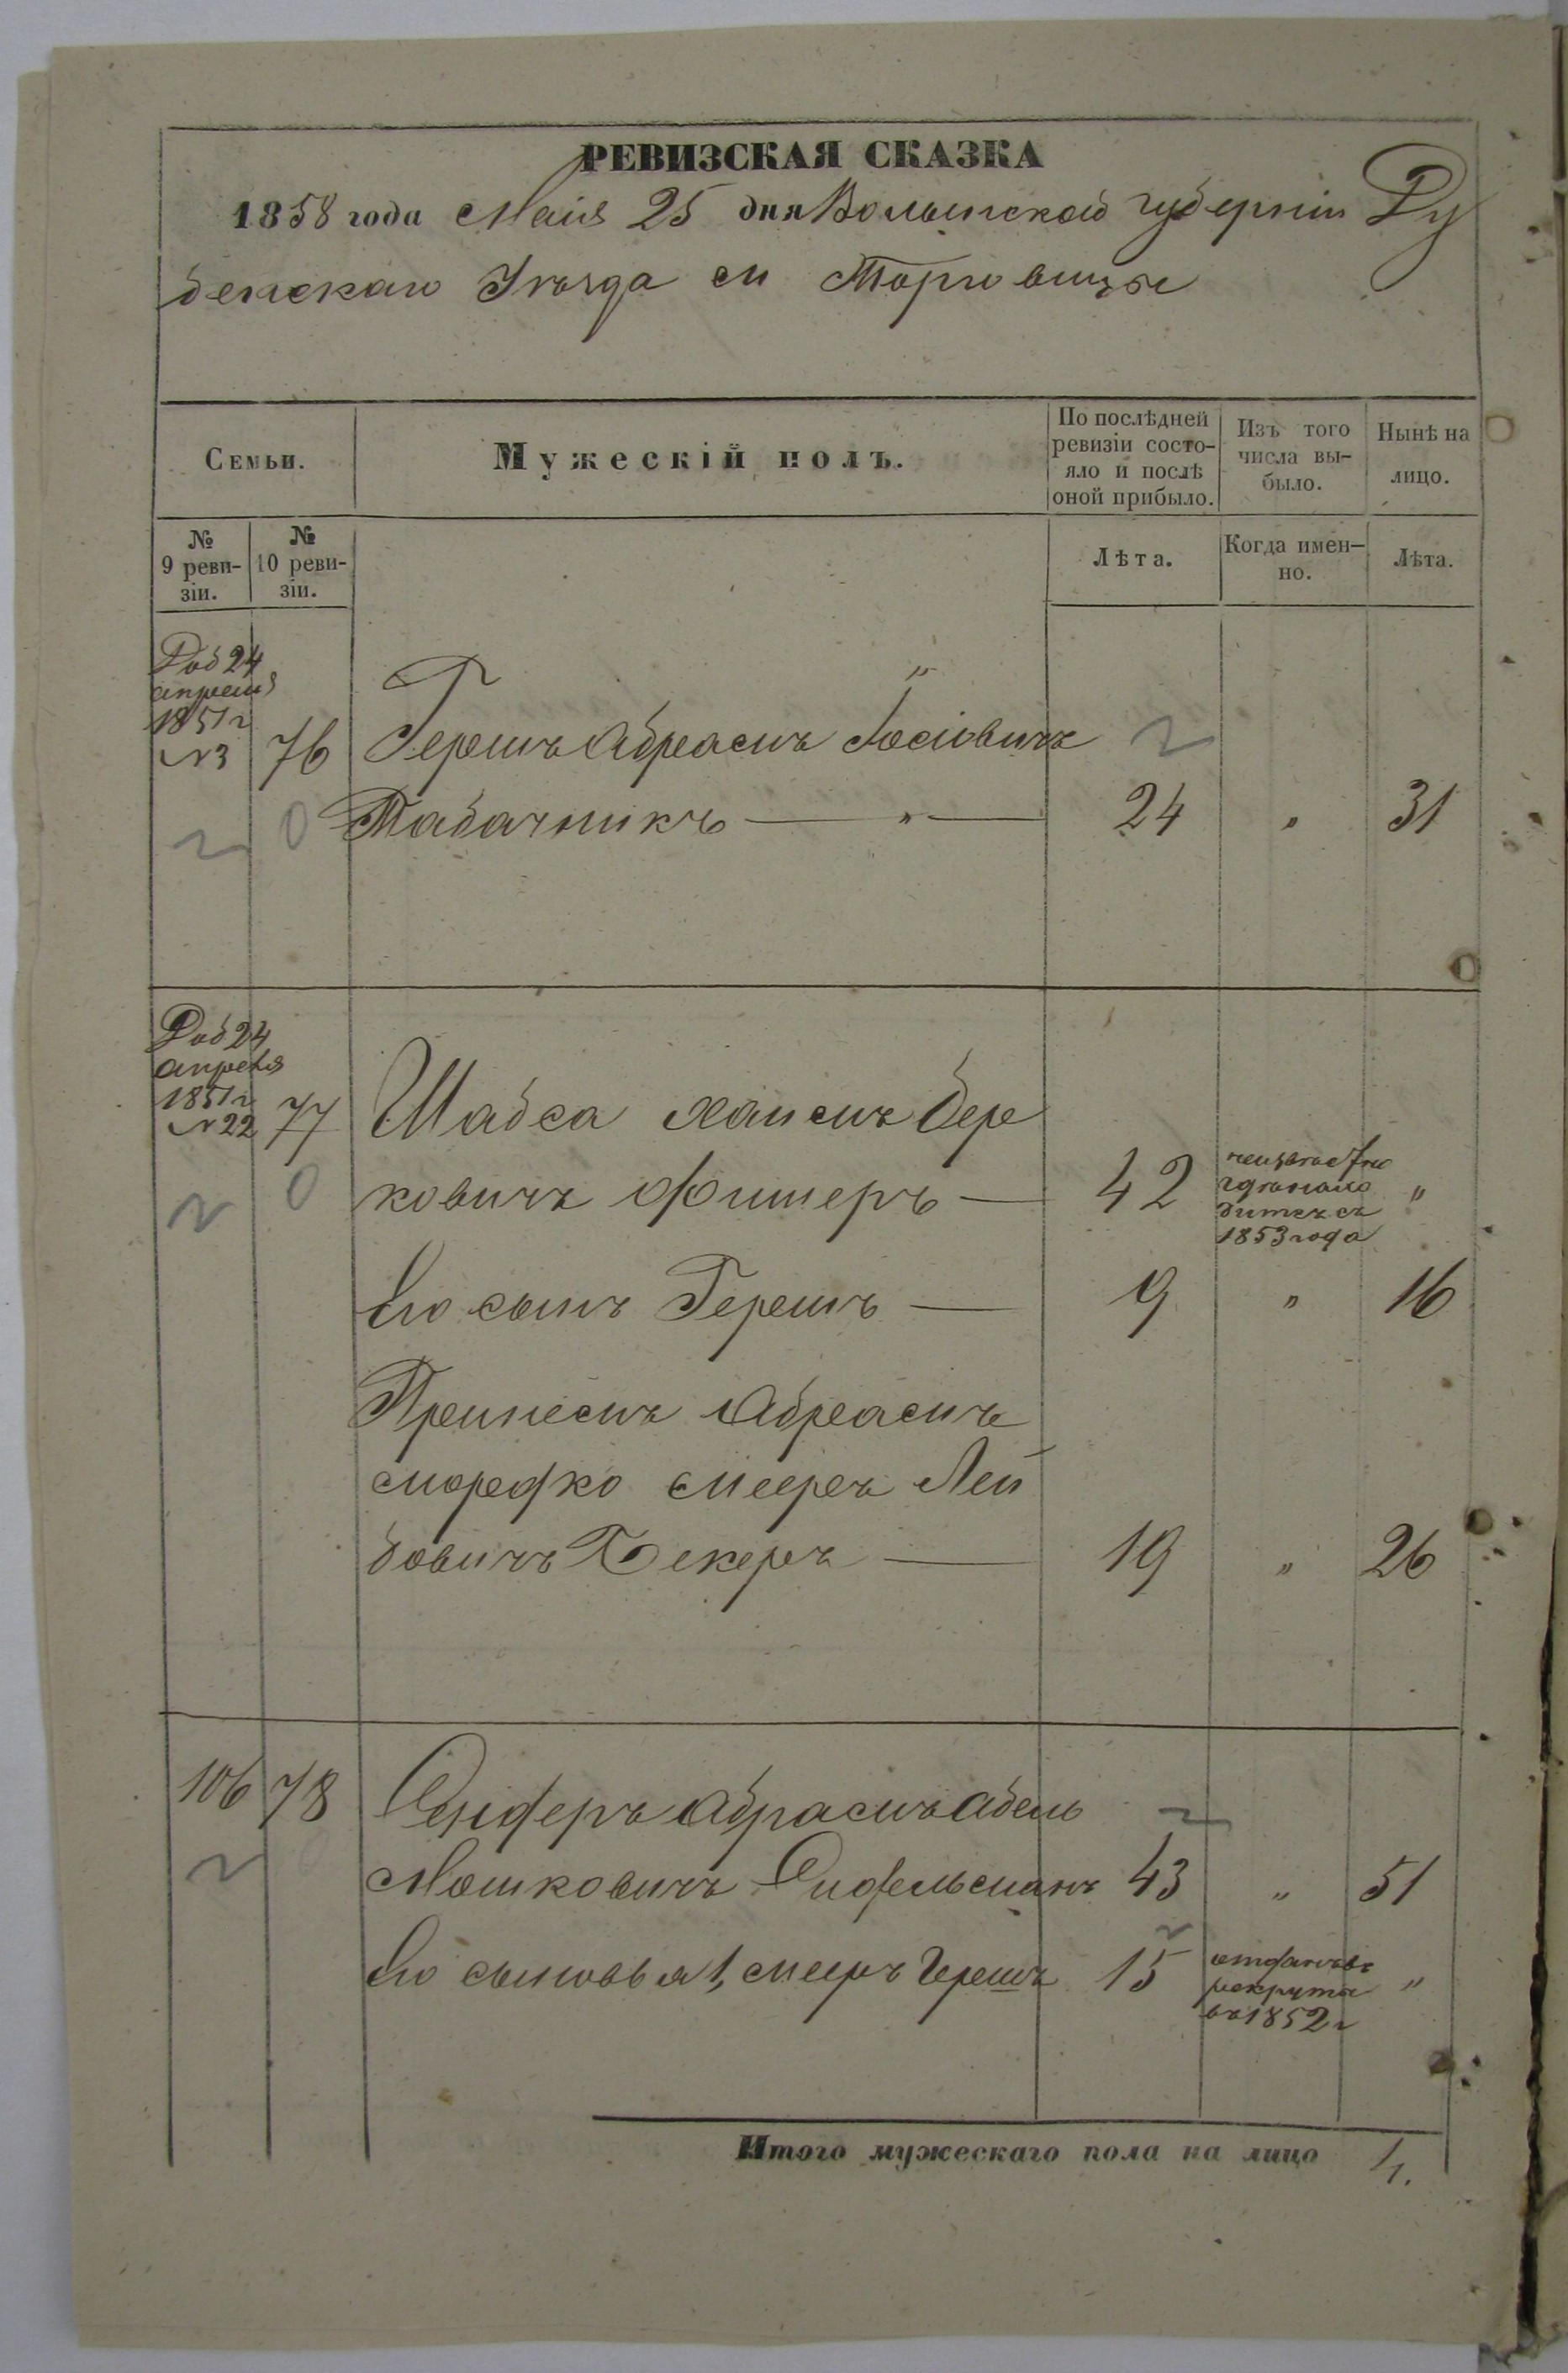 РЕВИЗСКАЯ СКАЗКА
1858 года Маія 25 дня Волынской губерніи Ду
бенскаго Уѣзда м Торговицы
Семьи.
Мужескій полъ.
По послѣдней
ревизіи состо-
яло и послѣ
оной прибыло.
Изъ того
числа вы-
было.
Нынѣ на
лицо.
№
9 реви-
зіи.
№
10 реви-
зіи.
Лѣта.
Когда имен-
но.
Лѣта.
Доб 24
апреля
1851 г
№ 3 76 Гершъ Абрамъ Іосіовичъ
Табачникъ — " — 24 " 31
Доб 24
апреля
1851 г
№ 22 77 Шабса Хаимъ Бер
ковичъ Фишеръ — 42 неизвестно
где находитца съ
1853 года "
Его сынъ Гершъ — 9 " 16
Абрамъ
Мордко Мееръ Лей
бовичъ Бекеръ — 19 " 26
106 78 Сендеръ Абрамъ Абель
Мошковичъ 43 " 51
Его сыновья 1, Мееръ Гершъ 15 отданъ въ
рекруты
въ 1852 г "
Итого мужескаго пола на лицо 4.